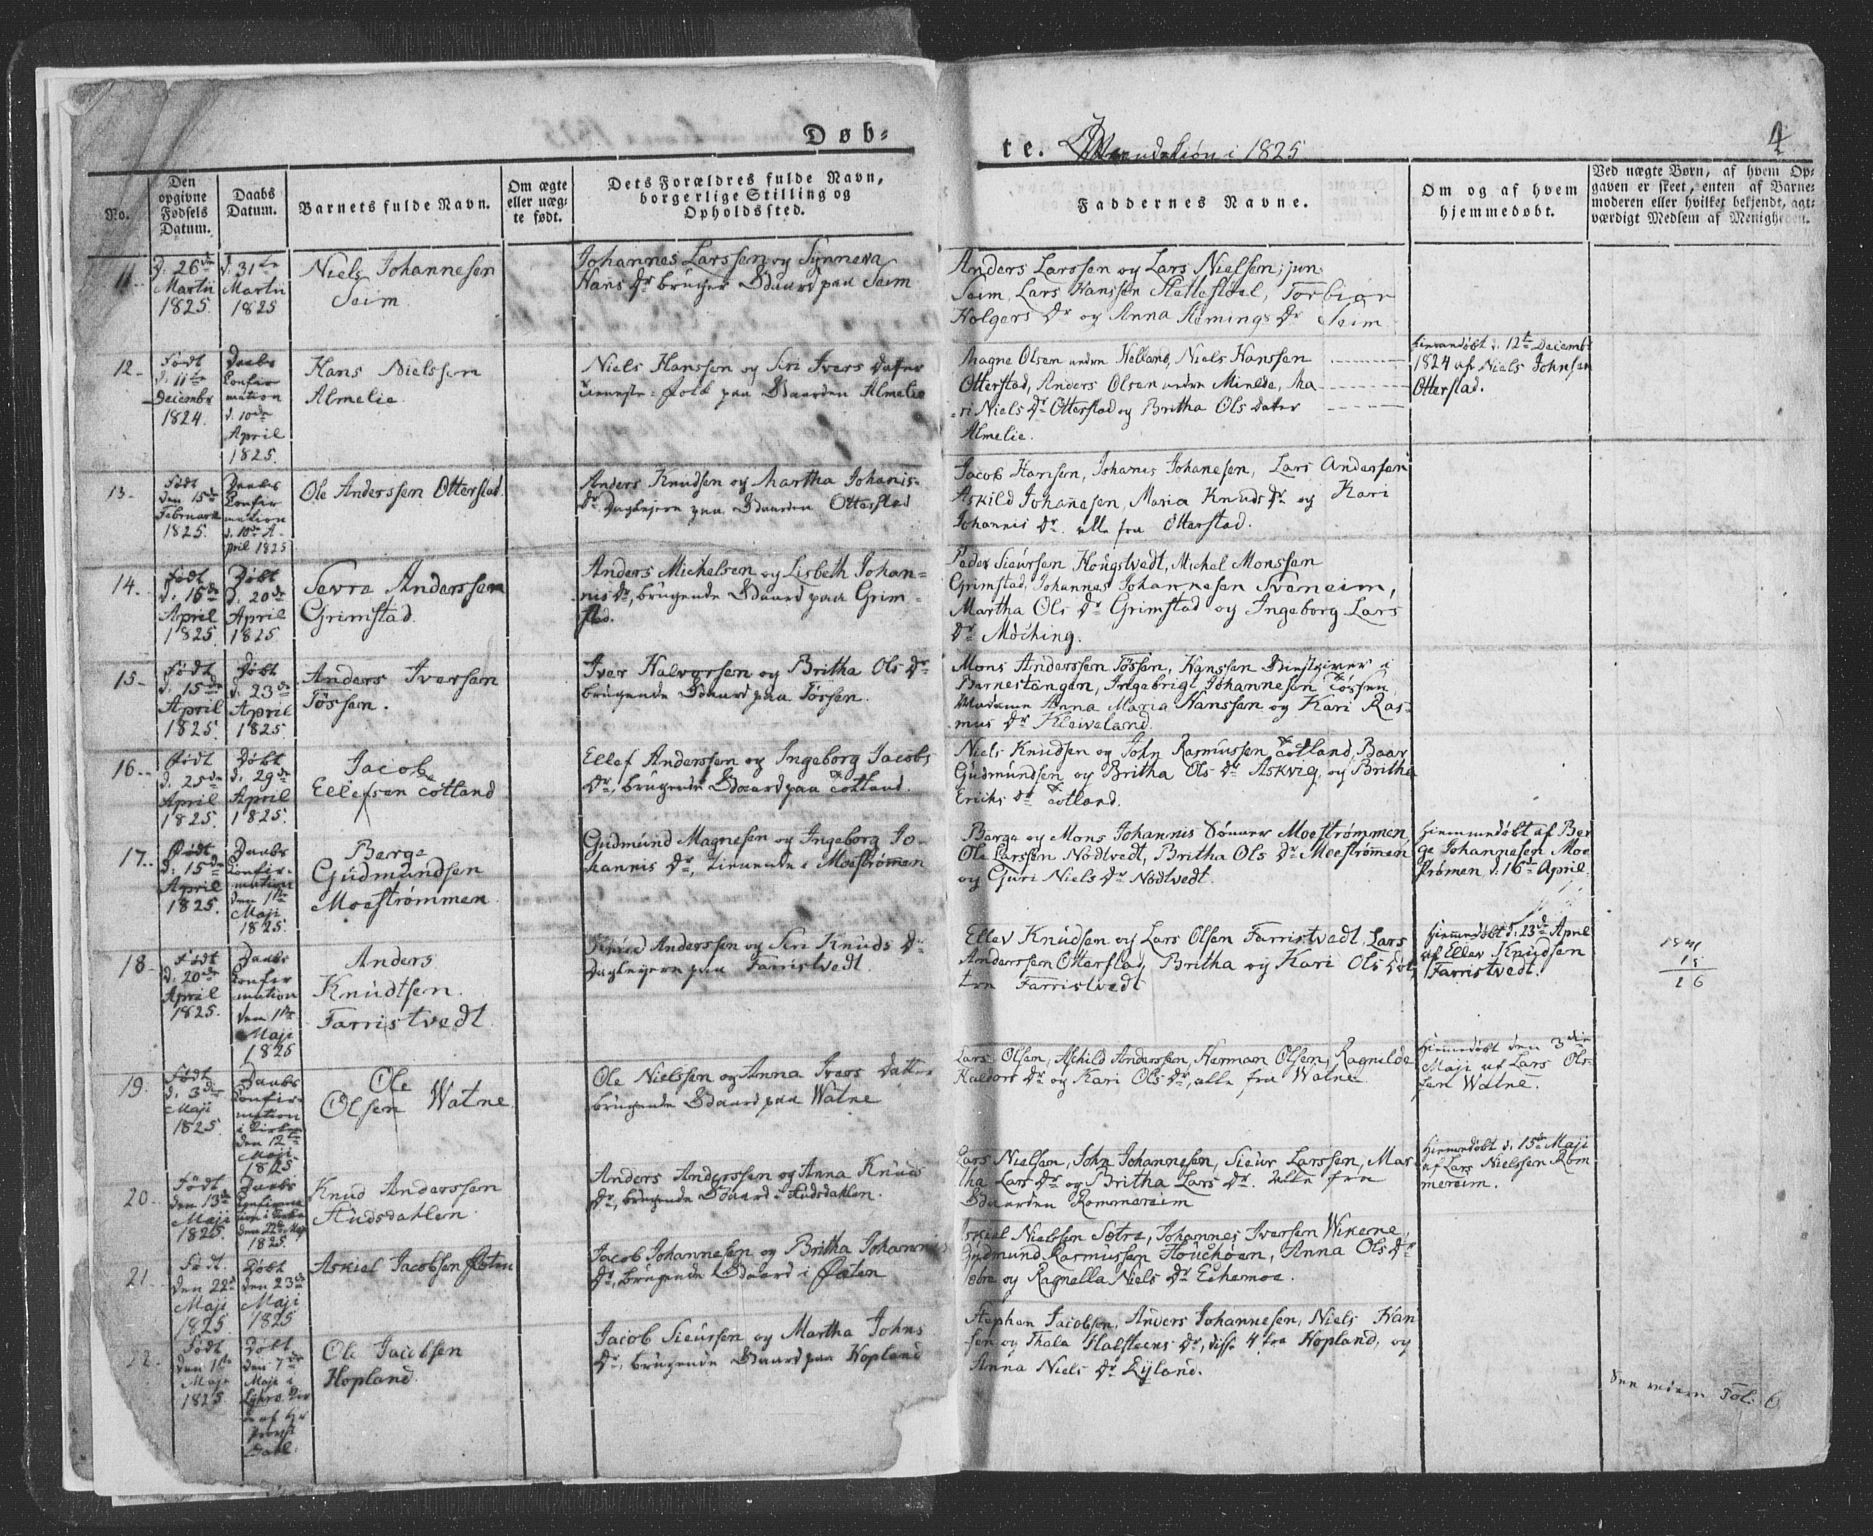 Døb-
te. Mandkiøn i 1825
4
No.
Den opgivne Fødsels Datum.
Daabs Datum.
Barnets fulde Navn.
Om ægte eller uægte født.
Dets Forældres fulde Navn, borgerlige Stilling og Opholdssted.
Faddernes Navne.
Om og af hvem hjemmedøbt.
Ved uægte Børn, af hvem Opgaven er skeet, enten af Barnemoderen eller hvilket bekjendt, agtværdigt Medlem af Menigheden.
11.
d. 26de
Martii
1825.
d. 31te
Martii
1825
Niels Johannesen
Seim.
Johannes Larssen og Synneva
Hans Dr bruger Gaard paa Seim
Anders Larssen og Lars Nielsen, jun.
Seim, Lars Hanssen Slettestoel, Torbiør
Holgers Dr og Anna Hemings Dr Seim
12.
Født
d. 11te
Decembr
1824.
Daabs
Confir
mation
d. 10de
April
1825.
Hans Nielssen
Almelie.
Niels Hanssen og Siri Ivers Datter
tieneste-Folk paa Gaarden Almelie
Magne Olsen nedre Helland, Niels Hanssen
Otterstad, Anders Olsen nedre Minlde, Ma
ri Niels Dr Otterstad og Britha Ols Dater
Almelie.
hiemmedøbt d. 12te Decemb.
1824 af Niels Johnsen
Otterstad.
13.
Født
den 15de
Februarii
1825.
Daabs
Confir
mation
d. 10de A-
pril 1825
Ole Anderssen Otterstad.
Anders Knudsen og Martha Johanis-
Dr Dagleiere paa Gaarden Otterstad
Jacob Hansen, Johanis Johanesen, Lars Andersen
Askild Johanesen, Maria Knuds Dr og Kari
Johannis Dr alle fra Otterstad.
14.
Født
d. 15de
April
1825
Døbt
d. 20de
April
1825
Sevre Anderssen
Grimstad.
Anders Michelsen og Lisbeth Johan-
nis Dr, brugende Gaard paa Grim-
stad.
Peder Sieursen Hougstvedt, Michel Monssen
Grimstad, Johannes Johannesen Sveneim,
Martha Ols Dr Grimstad og Ingeborg Lars
Dr Møching.
15.
Født
d. 15de
April
1825.
Døbt
d. 23de
April
1825.
Anders Iversen
Tøssen.
Iver Halvorsen og Britha Ols Dr
brugende Gaard paa Tøssen.
Mons Anderssen Tøssen, Hanssen Giestgiver i
Barnestangen, Ingebrigt Johannesen Tøssen,
Madame Anna Maria Hanssen og Kari Ras-
mus Dr Kleiveland.
16.
Født
d. 25de
April
1825.
Døbt
d. 29de
April
1825.
Jacob
Ellefsen Totland
Ellef Anderssen og Ingeborg Jacobs
Dr, brugende Gaard paa Totland.
Niels Knudsen og John Rasmussen Totland, Baar
Gudmundsen og Britha Ols Dr Askvig, og Britha
Erichs Dr Totland.
17.
Født
d. 15de
April
1825.
Daabs
Confir-
mation
den 1ste
Maji
1825.
Berge
Gudmundsen
Moestrømmen.
Gudmund Magnesen og Ingeborg Jo-
hannis Dr, tienende i Moestrømmen
Berge og Mons Johannis Sønner Moestrømmen
Ole Larssen Nodtvedt, Britha Ols Dr Moestrømmen
og Guri Niels Dr Nodtvedt.
hiemmedøbt af Ber
ge Johannesen Moe
strømen d. 16de April.
18.
Født
d. 20de
April
1825.
Daabs
Confir
mation
den 1ste
Maji
1825
Anders
Knudtsen.
Farristvedt.
Knud Anderssen og Siri Knuds Dr
Dagleiere paa Farristvedt.
Ellev Knudsen og Lars Olsen Farristvedt, Lars
Anderssen Otterstad, Britha og Kari Ols Døt,
tre Farristvedt
hiemmedøbt d. 23de April
af Ellev Knudsen
Farristvedt.
1841
15
26
19.
Født
d. 3de
Maji
1825.
Daabs
Confir-
mation
i Kirken
den 12te
Maji
1825.
Ole
Olsen Watne.
Ole Nielssen og Anna Ivers Datter
brugende Gaard paa Watne
Lars Olsen, Aschild Anderssen, Herman Olsen, Ragnilde
Haldors Dr og Kari Ols Dr, alle fra Watne
hiemmedøbt den 3die
Maji af Lars Ols-
sen Watne.
20.
Født
den 13de
Maji
1825.
Daabs
Confirma
tion i Kirken
den 22de Maji
1825.
Knud Anderssen
Husdahlen.
Anders Anderssen og Anna Knuds
Dr, brugende Gaard i Husdahlen.
Lars Nielsen, John Johannesen, Sieur Larssen, Mar
tha Lars Dr og Britha Lars Dr. alle fra
Gaarden Rommereim
hiemmedøbt d. 15de Maji
af Lars Nielssen Rom
mereim.
21.
Født
den 22de
Maji
1825
Døbt
den 23de
Maji
1825
Askiel Jacobsen Øxten
Jacob Johannesen og Britha Johannis
Dr, brugende Gaard i Øxten
Askiel Nielssen Sætre, Johannes Iversen Wikene,
Gudmund Rasmussen Houchøen, Anna Ols Dr
Sætre og Ragnella Niels Dr Echemoe.
22.
Født
den 1ste
Maji
1825
Døbt
den 7de
Maji i
Lykro Kir
ke af Hr
Provst
Dahl.
Ole Jacobsen
Hopland.
Jacob Sieursen og Martha Johns
Dr, brugende Gaard paa Hopland
Stephen Jacobsen, Anders Johannesen, Niels Han
sen og Thala Halsteens Dr, disse 4 fra Hopland, og
Anna Niels Dr Eyland.
See videre Fol. 6